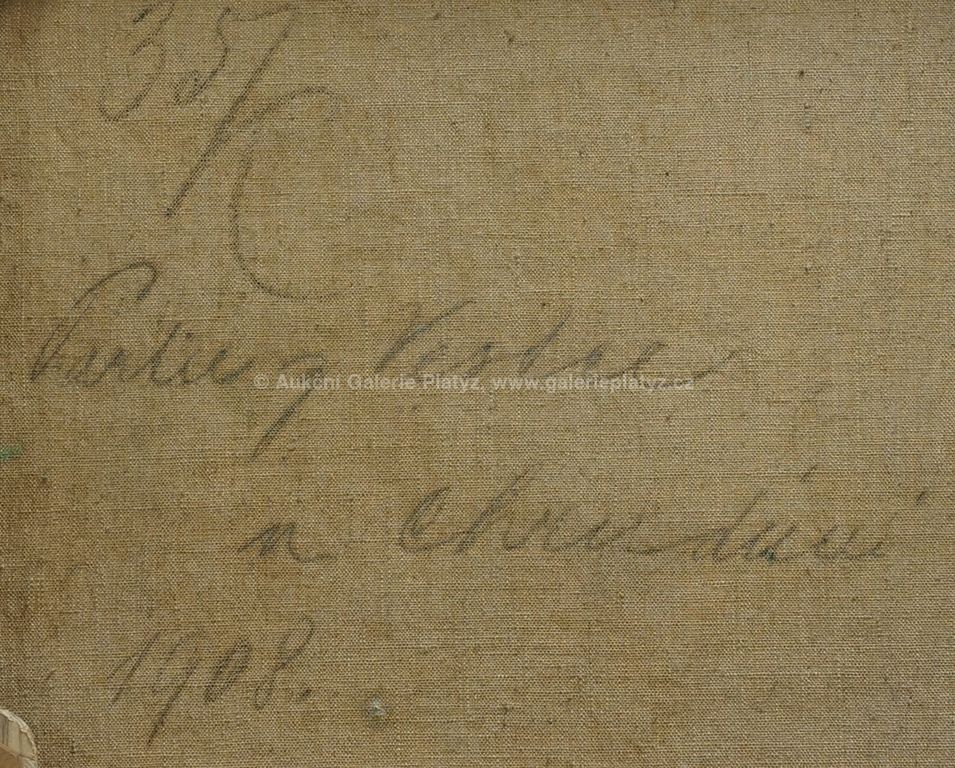 35/
Partie z Kostel
u Chrudimi
© Aukční Galerie Platýz, www.galerieplatyz.cz
1908.